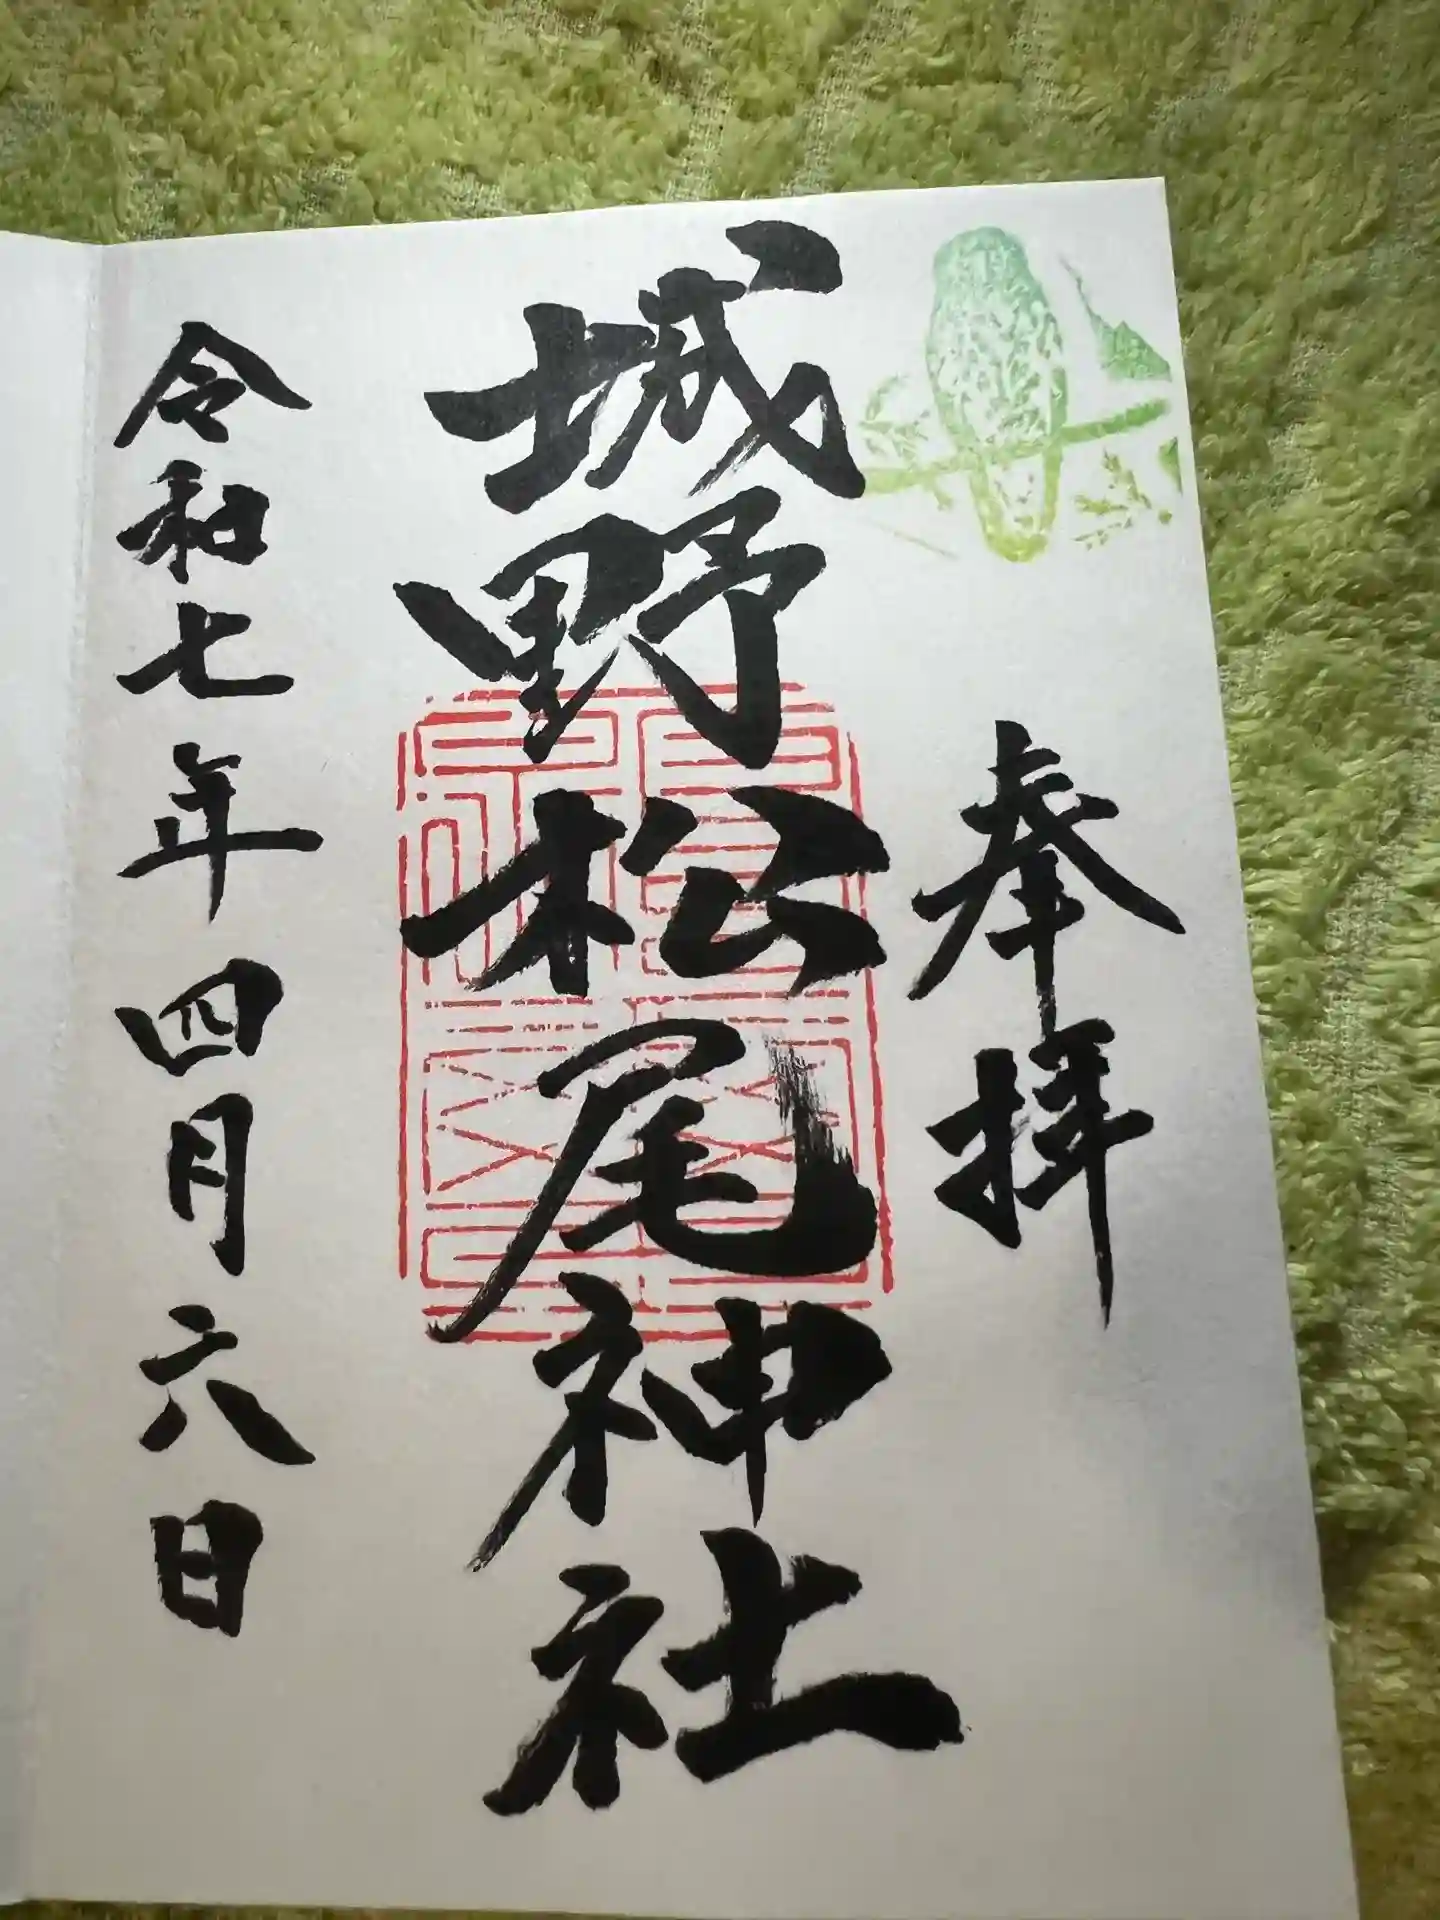 奉拝
城野松尾神社
令和七年四月六日